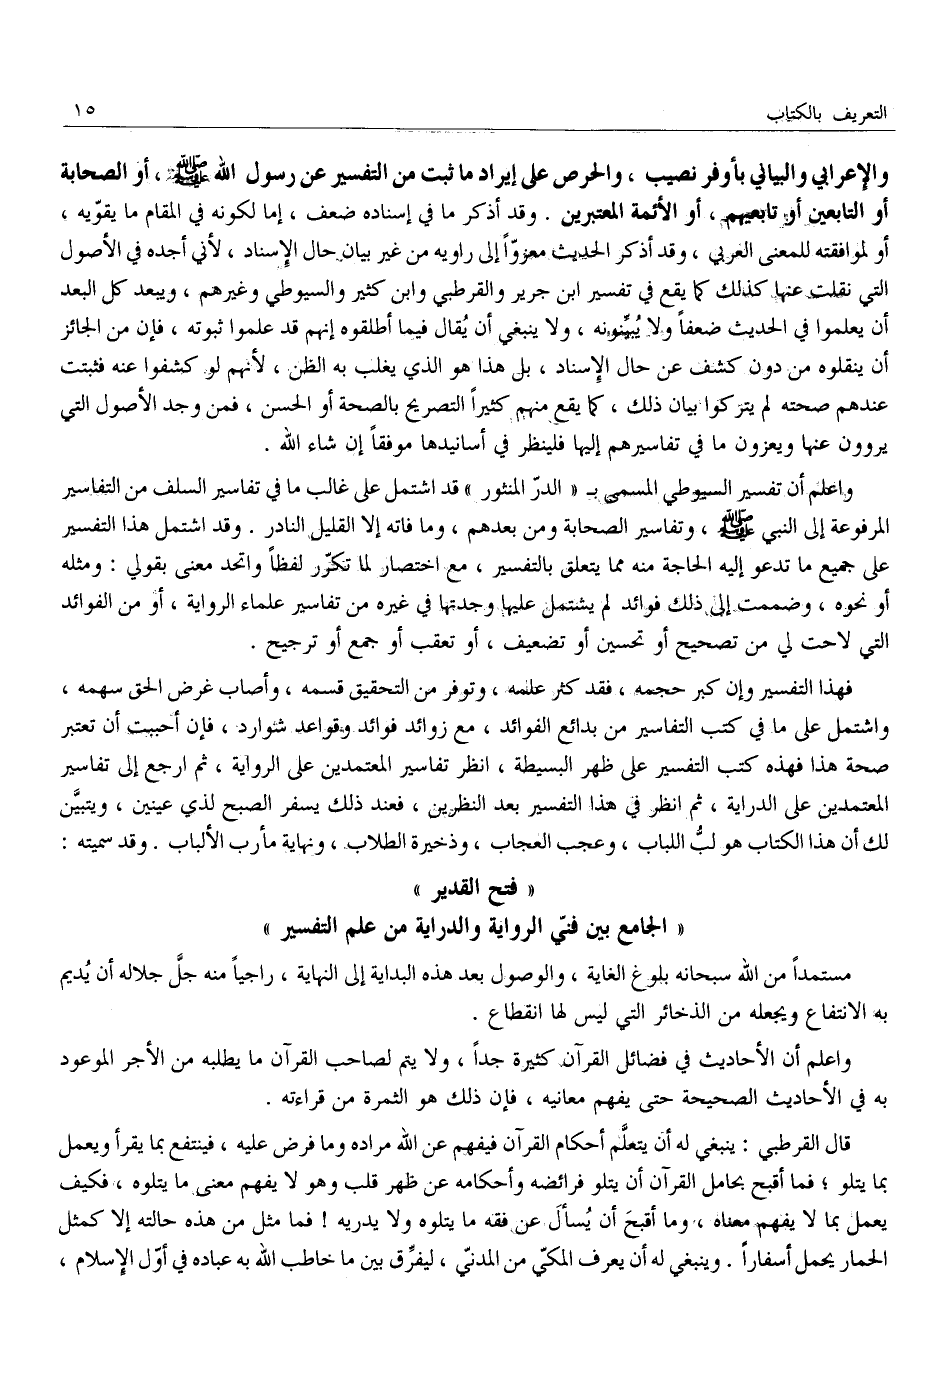 التعريف بالكتاب ١٥
والإعرابي والبياني بأوفر نصيب ، والحرص على إيراد ما ثبت من التفسير عن رسول الله ﷺ ، أو الصحابة
أو التابعين أو تابعيهم ، أو الأئمة المعتبرين . وقد أذكر ما في إسناده ضعف ، إما لكونه في المقام ما يقوّيه ،
أو لموافقته للمعنى العربي ، وقد أذكر الحديث معزوّاً إلى راويه من غير بيان حال الإسناد ، لأني أجده في الأصول
التي نقلت عنها كذلك كما يقع في تفسير ابن جرير والقرطبي وابن كثير والسيوطي وغيرهم ، ويبعد كل البعد
أن يعلموا في الحديث ضعفاً ولا يُبيِّنونه ، ولا ينبغي أن يُقال فيما أطلقوه إنهم قد علموا ثبوته ، فإن من الجائز
أن ينقلوه من دون كشف عن حال الإسناد ، بل هذا هو الذي يغلب به الظن ، لأنهم لو كشفوا عنه فثبتت
عندهم صحته لم يتركوا بيان ذلك ، كما يقع منهم كثيراً التصريح بالصحة أو الحسن ، فمن وجد الأصول التي
يروون عنها ويعزون ما في تفاسيرهم إليها فلينظر في أسانيدها موفقاً إن شاء الله .
واعلم أن تفسير السيوطي المسمى بـ « الدرّ المنثور » قد اشتمل على غالب ما في تفاسير السلف من التفاسير
المرفوعة إلى النبي ﷺ ، وتفاسير الصحابة ومن بعدهم ، وما فاته إلا القليل النادر . وقد اشتمل هذا التفسير
على جميع ما تدعو إليه الحاجة منه مما يتعلق بالتفسير ، مع اختصار لما تكرّر لفظاً واتحد معنى بقولي : ومثله
أو نحوه ، وضممت إلى ذلك فوائد لم يشتمل عليها وجدتها في غيره من تفاسير علماء الرواية ، أو من الفوائد
التي لاحت لي من تصحيح أو تحسين أو تضعيف ، أو تعقب أو جمع أو ترجيح .
فهذا التفسير وإن كبر حجمه ، فقد كثر علمه ، وتوفر من التحقيق قسمه ، وأصاب غرض الحق سهمه ،
واشتمل على ما في كتب التفاسير من بدائع الفوائد ، مع زوائد فوائد وقواعد شوارد ، فإن أحببت أن تعتبر
صحة هذا فهذه كتب التفسير على ظهر البسيطة ، انظر تفاسير المعتمدين على الرواية ، ثم ارجع إلى تفاسير
المعتمدين على الدراية ، ثم انظر في هذا التفسير بعد النظرين ، فعند ذلك يسفر الصبح لذي عينين ، ويتبيَّن
لك أن هذا الكتاب هو لبُّ اللباب ، وعجب العجاب ، وذخيرة الطلاب ، ونهاية مأرب الألباب . وقد سميته :
« فتح القدير »
« الجامع بين فنيّ الرواية والدراية من علم التفسير »
مستمداً من الله سبحانه بلوغ الغاية ، والوصول بعد هذه البداية إلى النهاية ، راجياً منه جلَّ جلاله أن يُديم
به الانتفاع ويجعله من الذخائر التي ليس لها انقطاع .
واعلم أن الأحاديث في فضائل القرآن كثيرة جداً ، ولا يتم لصاحب القرآن ما يطلبه من الأجر الموعود
به في الأحاديث الصحيحة حتى يفهم معانيه ، فإن ذلك هو الثمرة من قراءته .
قال القرطبي : ينبغي له أن يتعلَّم أحكام القرآن فيفهم عن الله مراده وما فرض عليه ، فينتفع بما يقرأ ويعمل
بما يتلو ؛ فما أقبح بحامل القرآن أن يتلو فرائضه وأحكامه عن ظهر قلب وهو لا يفهم معنى ما يتلوه ، فكيف
يعمل بما لا يفهم معناه ، وما أقبحَ أن يُسألَ عن فقه ما يتلوه ولا يدريه ! فما مثل من هذه حالته إلا كمثل
الحمار يحمل أسفاراً . وينبغي له أن يعرف المكيّ من المدنيّ ، ليفرِّق بين ما خاطب الله به عباده في أوّل الإسلام ،